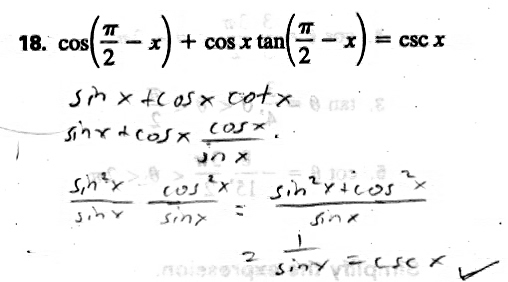 18. cos(π/2 − x) + cos x tan(π/2 − x) = csc x
sin x + cos x cot x
sin x + cos x cos x / sin x .
sin²x / sin x cos²x / sin x = sin²x + cos²x / sin x
= 1 / sin x = csc x ✓